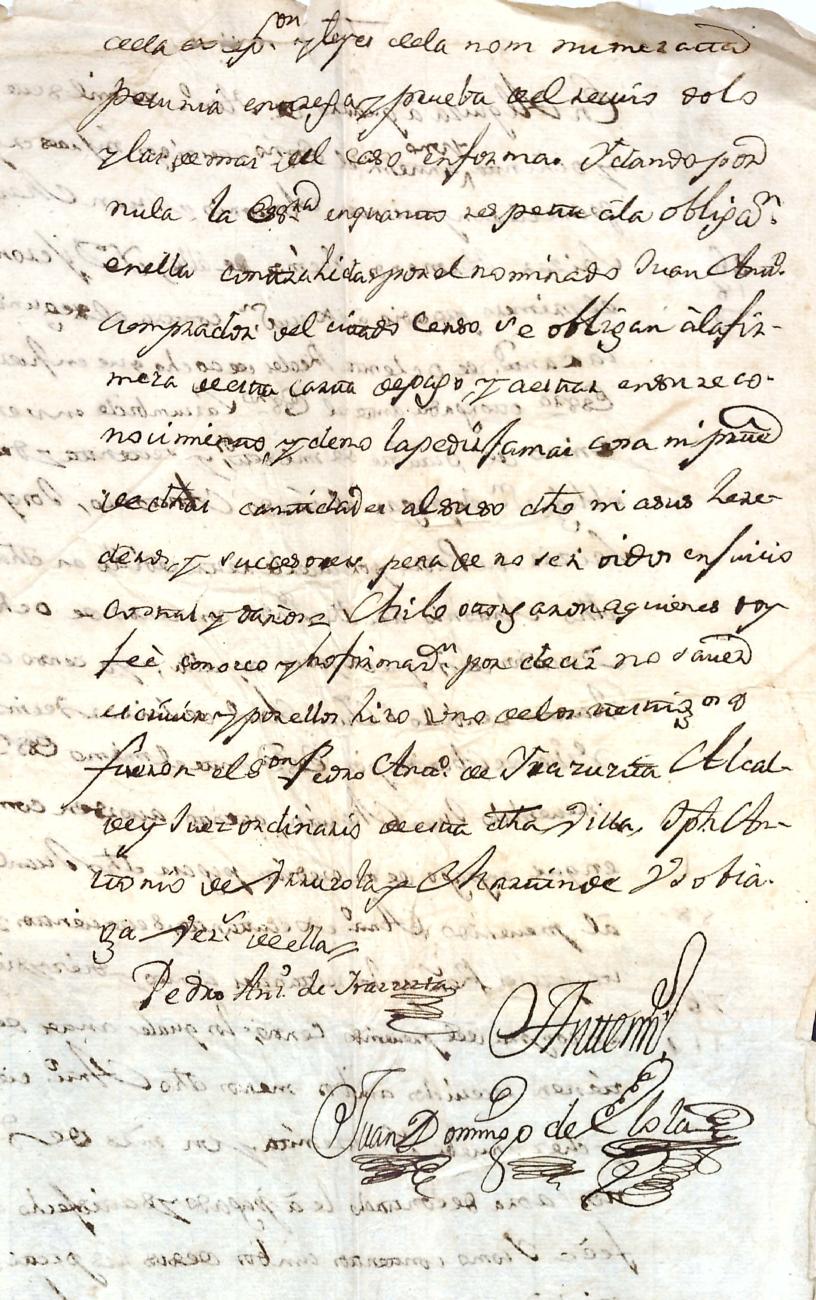 dela exepon. y leyes dela nom numeratta
pecunia entrega, y prueba del recivo dolo
y las demas del caso enforma. Y dando por
nula la Essra. enquanto respetta âla obligaon.
enella contrahida por el nominado Juan Anto.
comprador del citado Censo se obligan âlafir-
meza deesta cartta depago, y aestar ensu reco-
nocimiento, y deno lapedir Jamas cosa ni partte
dedhas cantidades alsuso dho ni asus here-
deros, y succesores pena de no ser oidos enJuicio
y Asilo otorgaron aquienes doy
feè conozco y nofirmaron. por decir no saver
escrivir y porellos hizo uno delos testtigos q
fueron el Sor. Dn Pedro Anto. de Yrazusta Alcal-
de y Juez ordinario deesta dha Villa, Jph An-
ttonio de y Marttin de
ga Vezs. deella
Pedro Anto. de Irazusta
Anttemi
Juan Domingo de